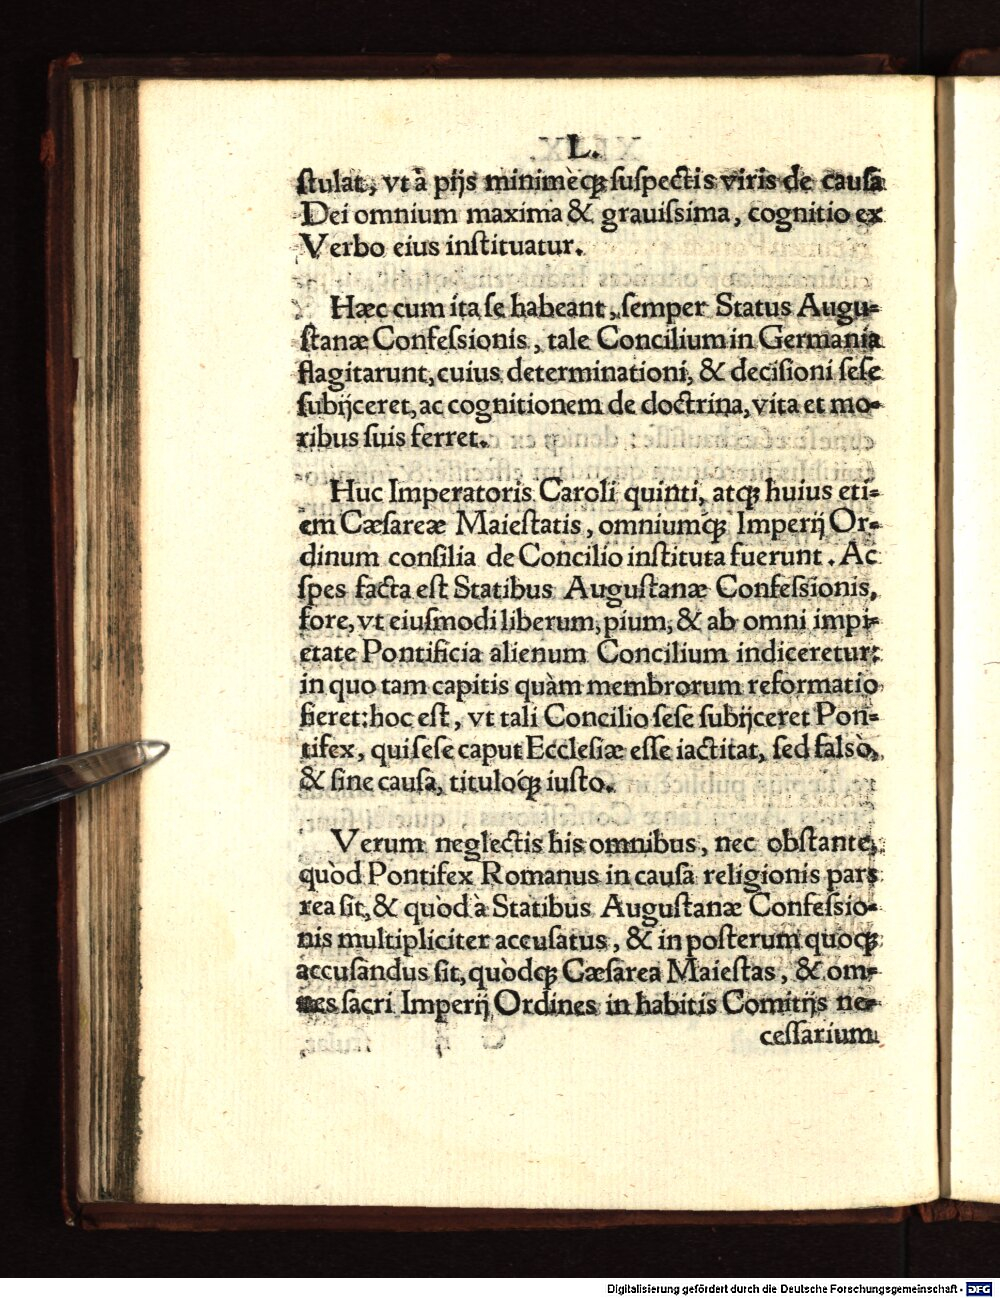 L.
ſtulat, vt à pijs minimèq́ꝫ ſuſpectis viris de cauſa
Dei omnium maxima & grauiſsima, cognitio ex
Verbo eius inſtituatur.
Hæc cum ita ſe habeant, ſemper Status Augu-
ſtanæ Confeſsionis, tale Concilium in Germania
flagitarunt, cuius determinationi, & deciſioni ſeſe
ſubijceret, ac cognitionem de doctrina, vita et mo-
ribus ſuis ferret.
Huc Imperatoris Caroli quinti, atqꝫ huius eti-
em Cæſareæ Maieſtatis, omniumq́ꝫ Imperij Or-
dinum conſilia de Concilio inſtituta fuerunt. Ac
ſpes facta eſt Statibus Auguſtanæ Confeſsionis,
fore, vt eiuſmodi liberum, pium, & ab omni impi-
etate Pontificia alienum Concilium indiceretur:
in quo tam capitis quàm membrorum reformatio
fieret: hoc eſt, vt tali Concilio ſeſe ſubijceret Pon-
tifex, qui ſeſe caput Eccleſiæ eſſe iactitat, ſed falsò,
& ſine cauſa, tituloq́ꝫ iuſto.
Verum neglectis his omnibus, nec obſtante,
quòd Pontifex Romanus in cauſa religionis pars
rea ſit, & quòd à Statibus Auguſtanæ Confeſsio-
nis multipliciter accuſatus, & in poſterum quoqꝫ
accuſandus ſit, quòdqꝫ Cæſarea Maieſtas, & om-
nes ſacri Imperij Ordines in habitis Comitijs ne-
ceſſarium
Digitalisierung gefördert durch die Deutsche Forschungsgemeinschaft - DFG